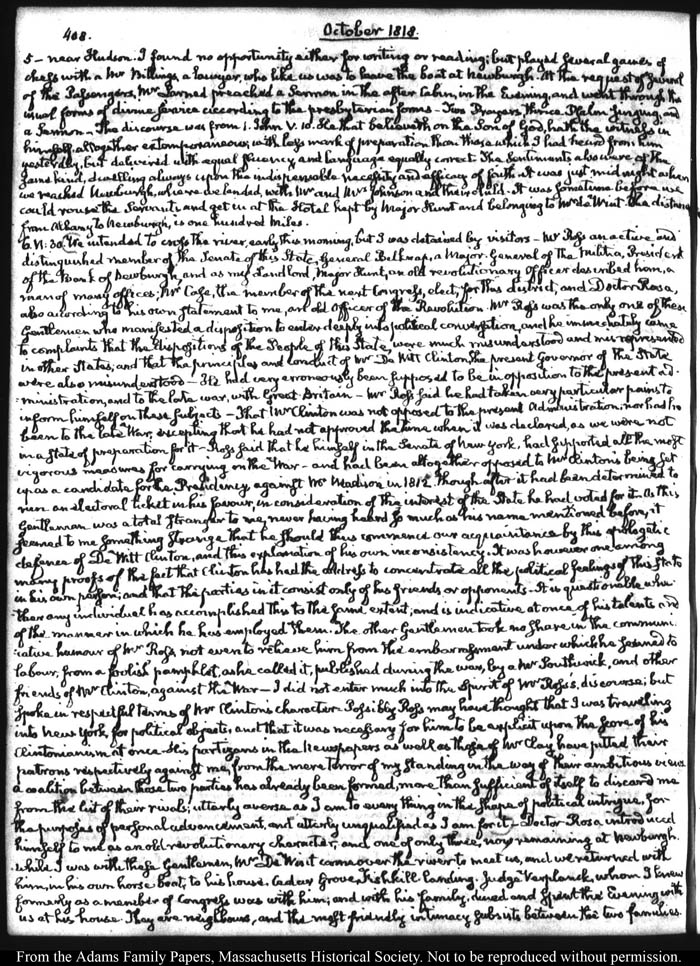 408.
October 1818.
5 - near Hudson. I found no opportunity either for writing or reading; but played several games of
chess with a Mr Billings, a lawyer, who like us was to leave the boat at Newburgh. At the request of several
of the Passengers, Mr Larned preached a Sermon in the after cabin, in the Evening, and went through the
usual forms of divine service according to the presbyterian forms - Two Prayers, thrice Psalm singing, and
a Sermon - The discourse was from 1. John V. 10. He that believeth on the Son of God, hath the witness in
himself, altogether extemporaneous; with less mark of preparation than those which I had heard from him
yesterday, but delivered with equal fluency and language equally correct. The sentiments also were of the
same kind, dwelling always upon the indispensable necessity and efficacy of faith. It was just midnight when
we reached Newburgh, where we landed, with Mr and Mrs Johnson and their child. It was sometime before we
could rouse the Servants and get in at the Hotel kept by Major Hunt and belonging to Mr De Wint. The distance
from Albany to Newburgh, is one hundred miles.
6. VI: 30. We intended to cross the river, early this morning, but I was detained by visitors - Mr Ross an active and
distinguished member of the Senate of this State, General Belknap, a Major-General of the Militia, President
of the Bank of Newburgh, and as my Landlord, Major Hunt, an old revolutionary Officer described him, a
man of many offices; Mr Case, the member of the next Congress, elect, for this district, and Doctor Rosa,
also according to his own statement to me, an old Officer of the Revolution. Mr Ross was the only one of these
Gentlemen who manifested a disposition to enter deeply into political conversation, and he immediately came
to complaints that the dispositions of the People of this State, were much misunderstood and misrepresented
in other States; and that the principles and conduct of Mr De Witt Clinton, the present Governor of the State
were also misunderstood - He had very erroneously been supposed to be in opposition to the present ad-
ministration, and to the late war, with Great Britain - Mr Ross said he had taken very particular pains to
inform himself on these subjects - That Mr Clinton was not opposed to the present Administration; nor had he
been to the late War, excepting that he had not approved the time when it was declared, as we were not
in a state of preparation for it - Ross said that he himself in the Senate of New York, had supported all the most
vigorous measures for carrying on the War - and had been altogether opposed to Mr Clinton's being set
up as a candidate for the Presidency against Mr Madison in 1812. Though after it had been determined to
run an electoral ticket in his favour, in consideration of the interest of the State he had voted for it. As this
Gentleman was a total stranger to me, never having heard so much as his name mentioned before, it
seemed to me something strange that he should thus commence our acquaintance by this apologetic
defence of De Witt Clinton, and this explanation of his own inconsistency. It was however one among
many proofs of the fact that Clinton has had the address to concentrate all the political feelings of this State
in his own person; and that the parties in it consist only of his friends or opponents. It is questionable whe-
ther any individual has accomplished this to the same extent; and is indicative at once of his talents and
of the manner in which he has employed them. The other Gentlemen took no share in the communi-
cative humour of Mr Ross, not even to relieve him from the embarrassment under which he seemed to
labour, from a foolish pamphlet, as he called it, published during the war, by a Mr Southwick, and other
friends of Mr Clinton, against the War - I did not enter much into the spirit of Mr Ross's discourse; but
spoke in respectful terms of Mr Clinton's character. Possibly Ross may have thought that I was traveling
into New York, for political objects; and that it was necessary for him to be explicit upon the score of his
Clintonianism at once. His partizans in the Newspapers as well as those of Mr Clay, have pitted their
patrons respectively against me, from the mere terror of my standing in the way of their ambitious views
a coalition between those two parties has already been formed, more than sufficient of itself to discard me
from the list of their rivals; utterly averse as I am to every thing in the shape of political intrigue, for
the purposes of personal advancement, and utterly unqualified as I am for it. Doctor Rosa introduced
himself to me as an old revolutionary character, and one of only three, now remaining at Newburgh.
While I was with these Gentlemen, Mr De Wint came over the river to meet us, and we returned with
him, in his own horse boat, to his house. Cedar Grove, Fishkill Landing. Judge Verplanck, whom I knew
formerly as a member of Congress was with him; and with his family, dined and spent the Evening with
us at his house. They are neighbours, and the most friendly intimacy subsists between the two families.
From the Adams Family Papers, Massachusetts Historical Society. Not to be reproduced without permission.